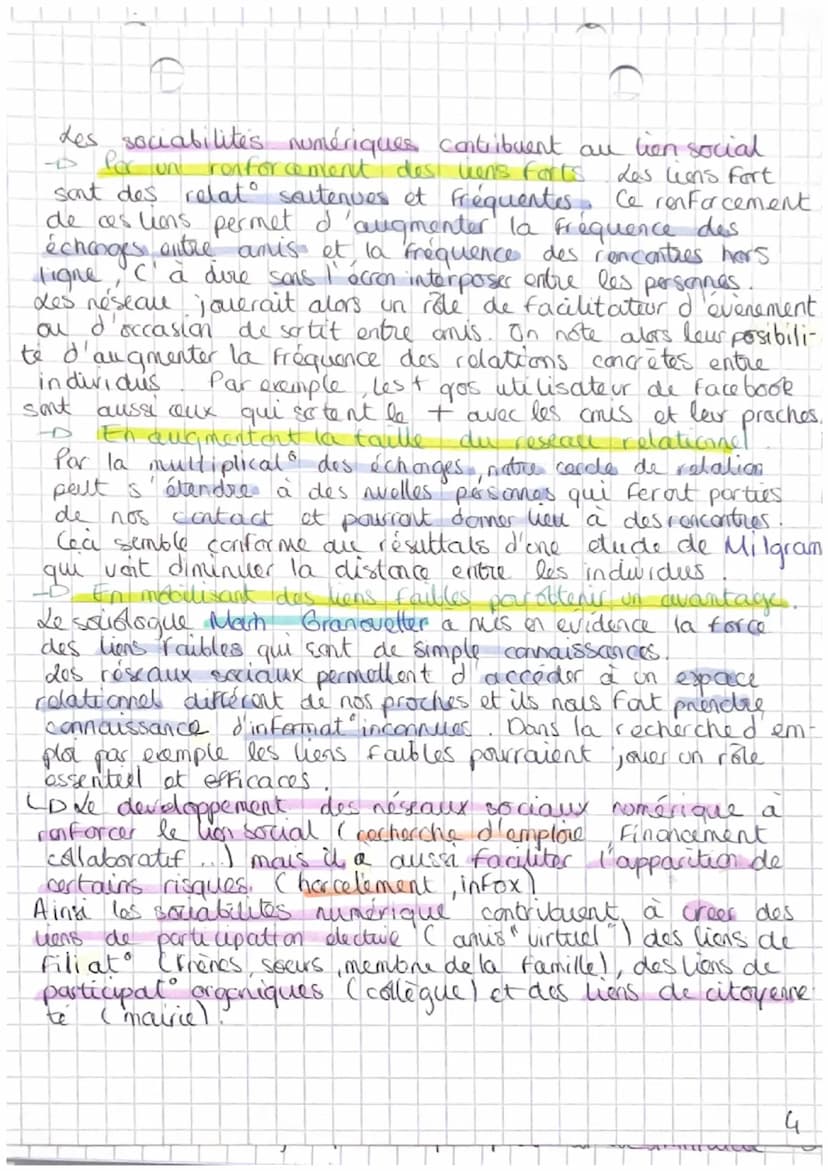 Les sociabilités numériques contribuent au lien social
→ Par un renforcement des liens forts. Les liens fort
sont des relat° soutenues et fréquentes. Ce renforcement
de ces liens permet d'augmenter la fréquence des
échanges entre amis et la fréquence des rencontres hors
ligne, c'à dire sans l'écran interposer entre les personnes.
Les réseau jouerait alors un rôle de facilitateur d'évènement
ou d'occasion de sortit entre amis. On note alors leur posibili-
té d'augmenter la fréquence des relations concrètes entre
individus. Par exemple, les + gos utilisateur de facebook
sont aussi ceux qui sortent le + avec les amis et leur proches.
→ En augmentant la taille du reseau relationnel
Par la multiplicat° des échanges, notre cercle de relation
peut s'étendre à des nvelles personnes qui feront parties
de nos contact et pourront donner lieu à des rencontres.
Ceci semble conforme aux résultats d'une etude de Milgram
qui voit diminuer la distance entre les individus.
→ En mobilisant des liens failles par obtenir un avantage.
Le sociologue Mark Granovetter a mis en evidence la force
des liens faibles qui sont de simple connaissances.
Les réseaux sociaux permettent d'accéder à un espace
relationnel différent de nos proches et ils nous font prendre
connaissance d'informat° inconnues. Dans la recherche d'em-
ploi par exemple les liens faibles pourraient jouer un rôle
essentiel et efficaces.
↳ Le developpement des réseaux sociaux numérique a
renforcer le lien social (recherche d'emploie, Financement
collaboratif...) mais il a aussi faciliter l'apparition de
certains risques. (harcelement, infox)
Ainsi les sociabilités numérique contribuent à creer des
liens de participation elective (amis "virtuel") des liens de
filiat° (frères, soeurs, membre de la famille), des liens de
participat° organiques (collègue) et des liens de citoyenne-
té (mairie).
4